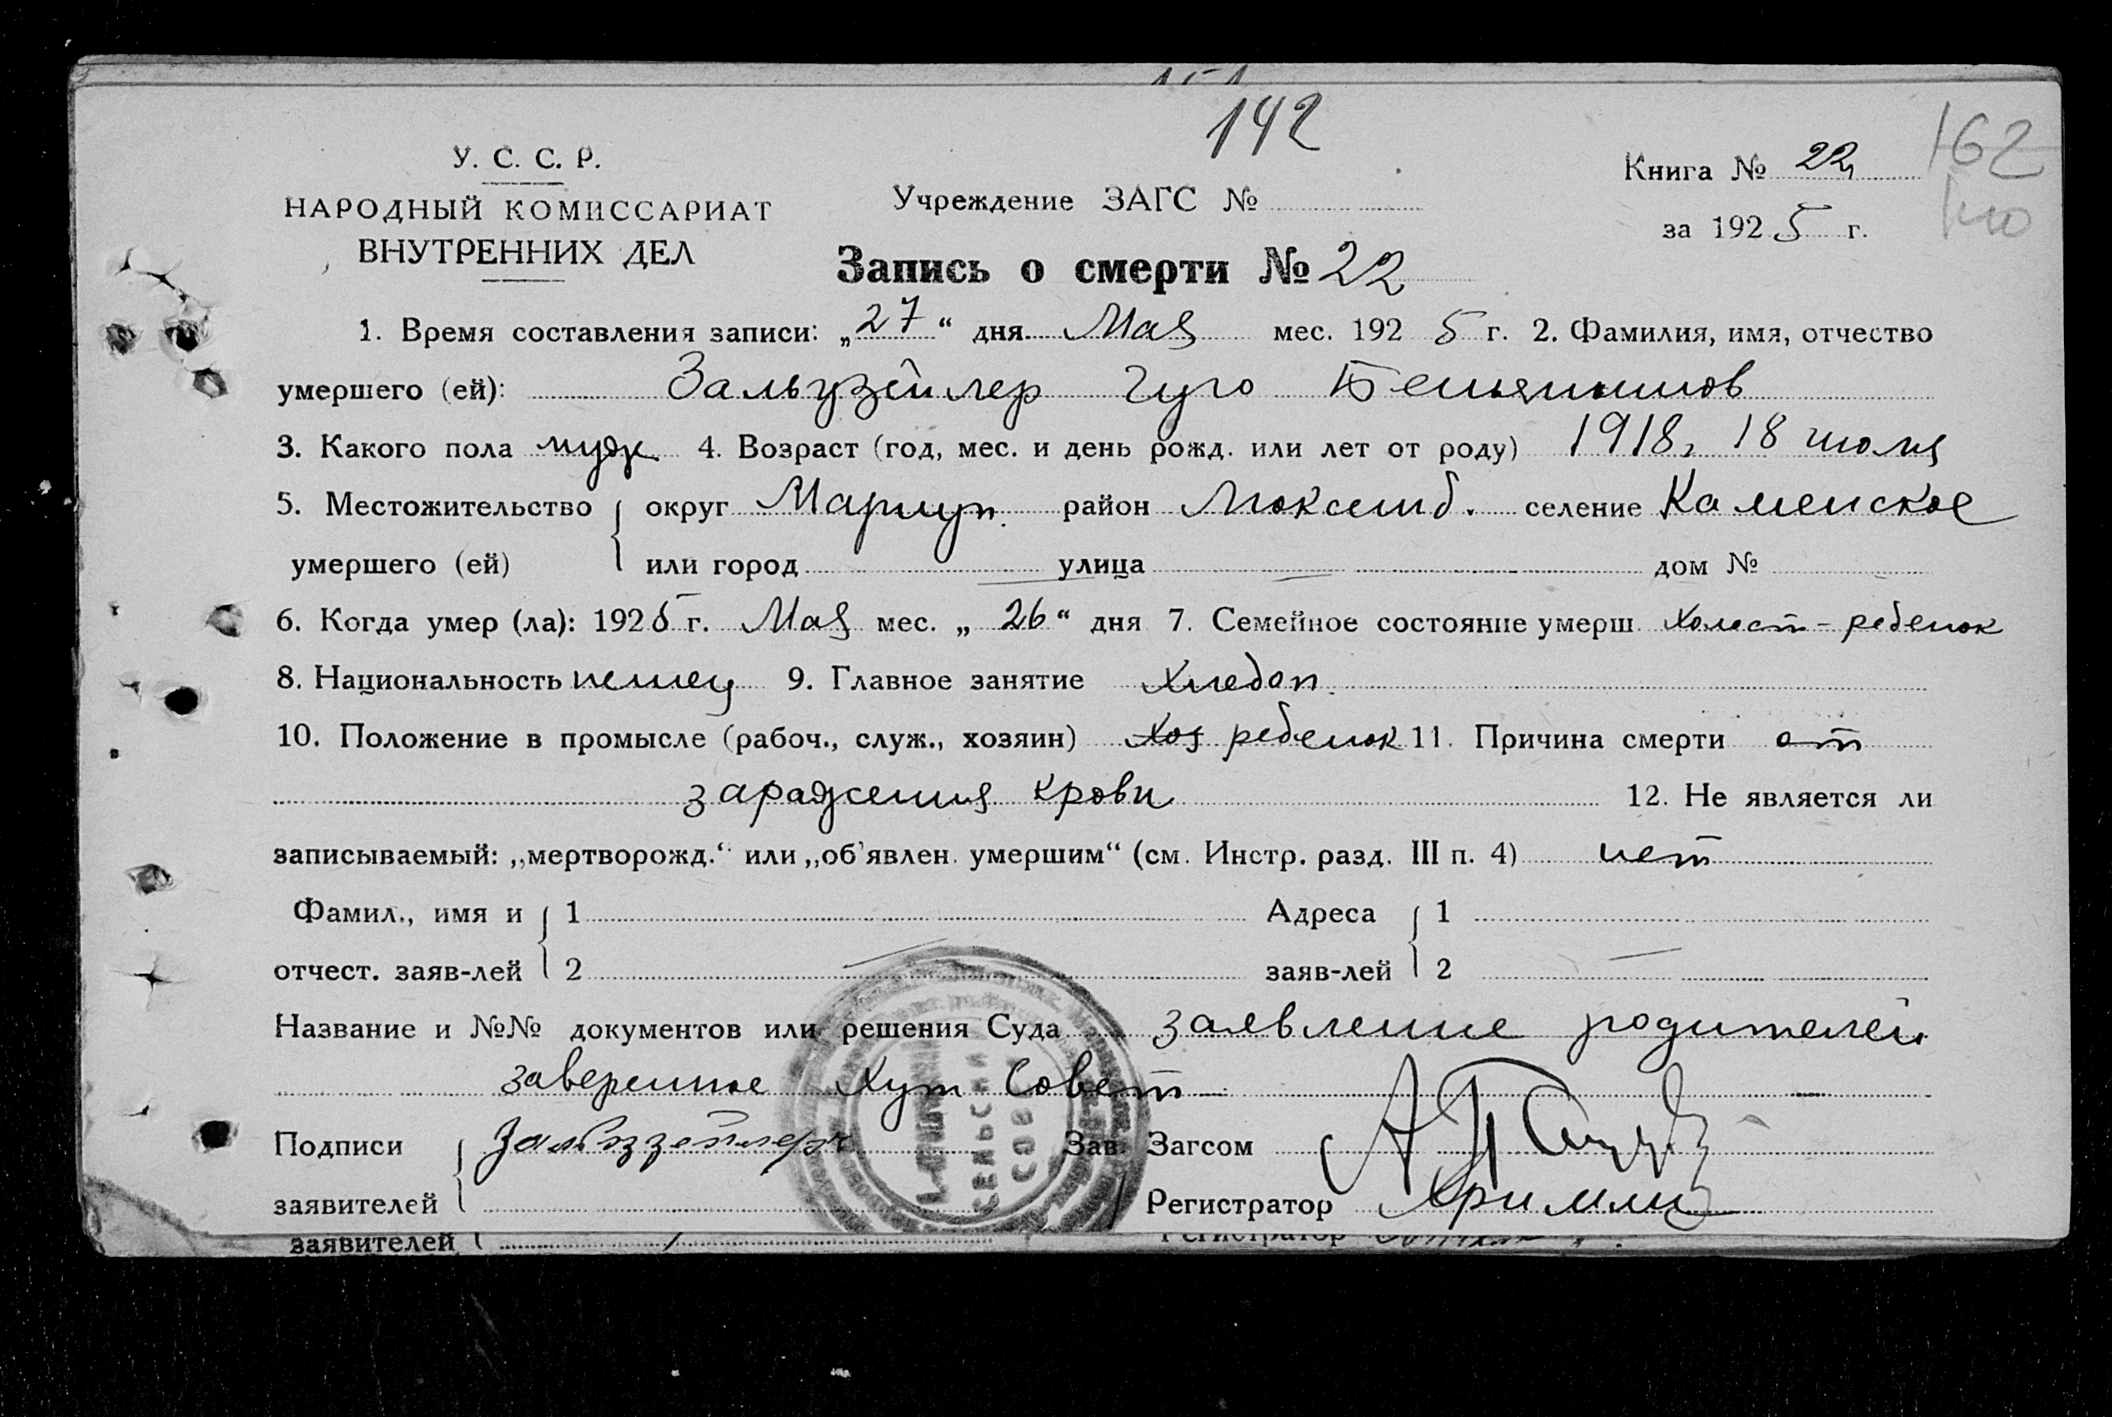 142
162
У. С. С. Р.
НАРОДНЫЙ КОМИССАРИАТ
ВНУТРЕННИХ ДЕЛ
Учреждение ЗАГС №
Книга № 22
за 1925 г.
Запись о смерти № 22
1. Время составления записи: „27“ дня Мая мес. 1925 г. 2. Фамилия, имя, отчество
умершего (ей): Зальцзейлер Гуго Беньяминов
3. Какого пола мужс. 4. Возраст (год, мес. и день рожд. или лет от роду) 1918, 18 июля
5. Местожительство умершего (ей) округ Мариуп. район Люксемб. селение Каменское
или город улица дом №
6. Когда умер (ла): 1925 г. Мая мес. „26“ дня 7. Семейное состояние умерш. холост - ребенок
8. Национальность немец 9. Главное занятие Хлебоп.
10. Положение в промысле (рабоч., служ., хозяин) хоз ребенок 11. Причина смерти от
заражения крови 12. Не является ли
записываемый: „мертворожд.“ или „об'явлен. умершим“ (см. Инстр. разд. III п. 4) нет
Фамил., имя и отчест. заяв-лей 1
2
Адреса заяв-лей 1
2
Название и №№ документов или решения Суда заявление родителей
заверенное Хут Совет
Подписи заявителей
Зав. Загсом
Регистратор
СЕЛЬСКИЙ
СОВ
заявителей
Регистратор